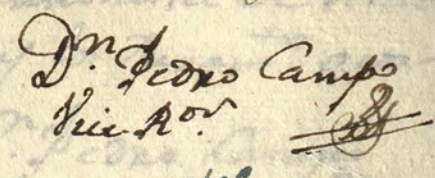 Dn. Pedro Campo
Vice Ror.